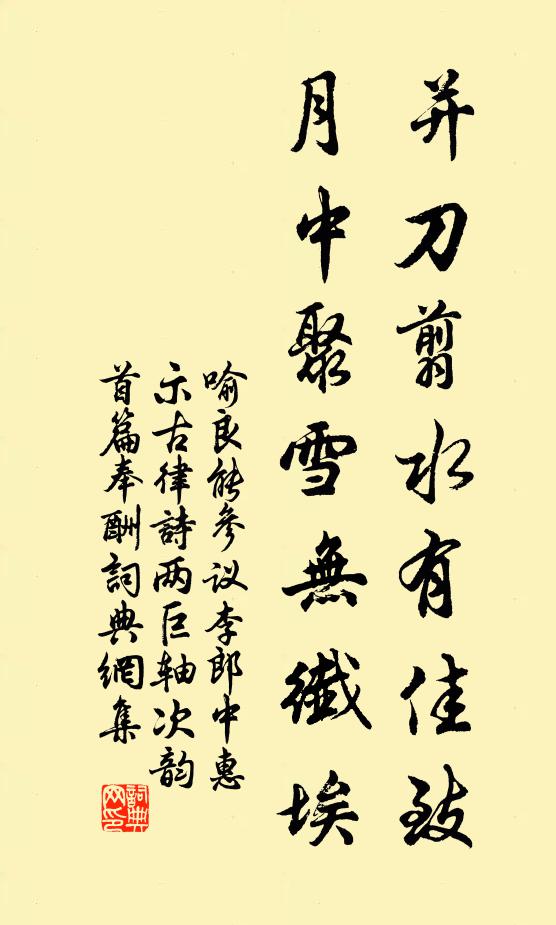 并刀剪水有佳致
月中聚雪無纖埃
喻良能參议李郎中惠
示古律詩两巨轴次韵
首篇奉酬詞典網集
詞典
网印